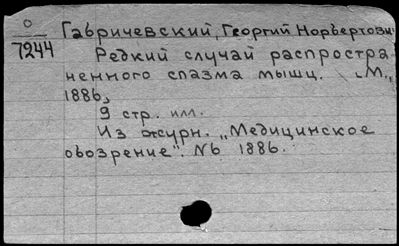 О
7244
Габричевский, Георгий Норбертович
Редкий случай распростра
ненного спазма мышц. М.,
1886,
9 стр. илл.
Из журн. „Медицинское
обозрение". № 1886.